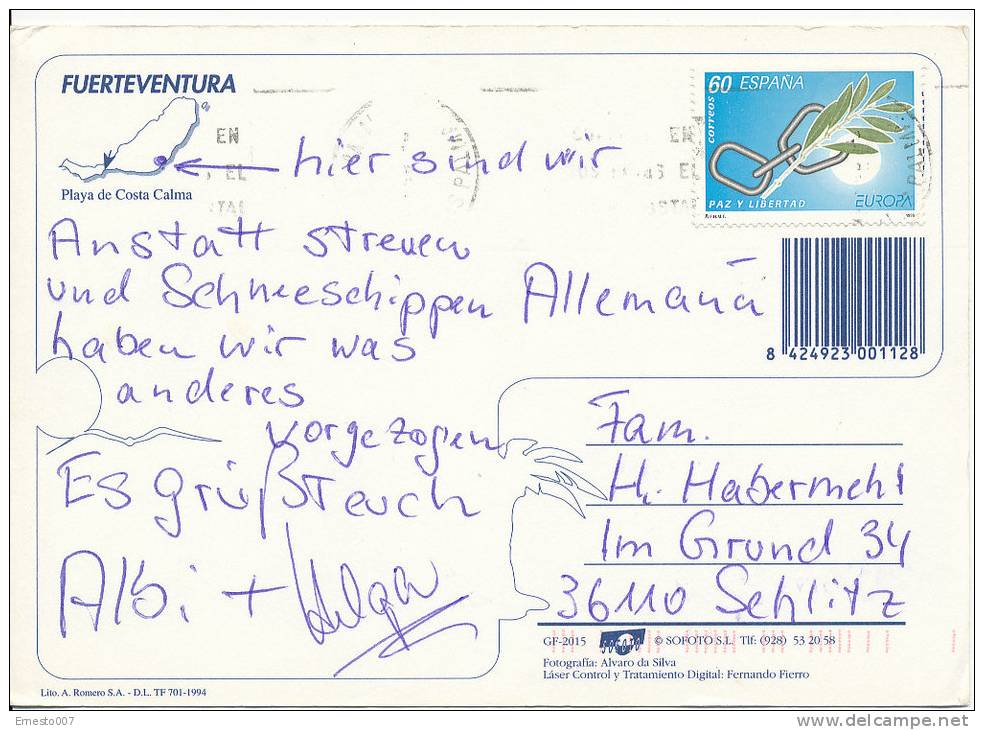 FUERTEVENTURA
Playa de Costa Calma
hier sind wir
60 ESPAÑA
correos
PAZ Y LIBERTAD
EUROPA
EN
EL
Anstatt streuen
und Schneeschippen
haben wir was
anderes
vorgezogen
Es grüßt euch
Albi + Helga
Allemana
8 424923 001128
Fam.
H. Habermehl
Im Grund 34
36110 Schlitz
GF-2015 SOFOTO © SOFOTO S.L. Tlf: (928) 53 20 58
Fotografía: Alvaro da Silva
Láser Control y Tratamiento Digital: Fernando Fierro
Lito. A. Romero S.A. - D.L. TF 701-1994
Ernesto007
www.delcampe.net